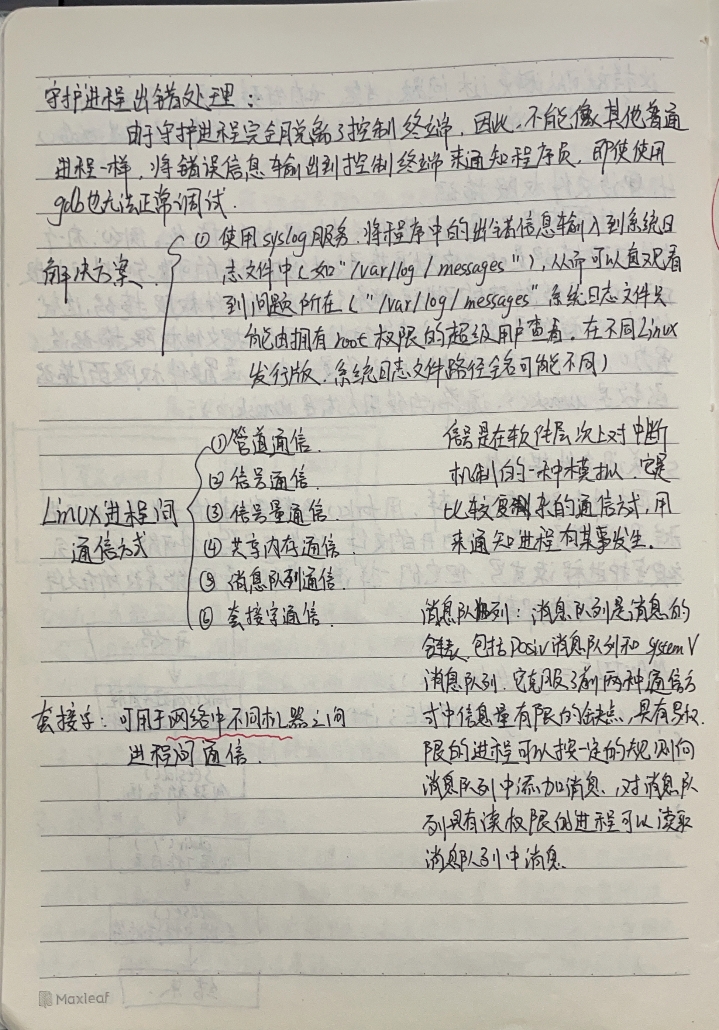 守护进程出错处理：
由于守护进程完全脱离了控制终端，因此，不能像其他普通
进程一样，将错误信息输出到控制终端来通知程序员，即使使用
gdb也无法正常调试.
解决方案.
① 使用syslog服务，将程序中的出错信息输入到系统日
志文件中（如"/var/log/messages"），从而可以直观看
到问题所在（"/var/log/messages" 系统日志文件只
能由拥有root权限的超级用户查看，在不同Linux
发行版，系统日志文件路径全名可能不同）
Linux进程间
通信方式
①管道通信.
②信号通信.
③信号量通信.
④共享内存通信.
⑤消息队列通信.
⑥套接字通信.
信号是在软件层次上对中断
机制的一种模拟，它是
比较复杂的通信方式，用
来通知进程有某事发生.
消息队列：消息队列是消息的
链表，包括Posix消息队列和System V
消息队列，它克服了前两种通信方
式中信息量有限的缺点，具有写权
限的进程可以按一定的规则向
消息队列中添加消息，对消息队
列具有读权限的进程可以读取
消息队列中消息.
套接字：可用于网络中不同机器之间
进程间通信.
Maxleaf